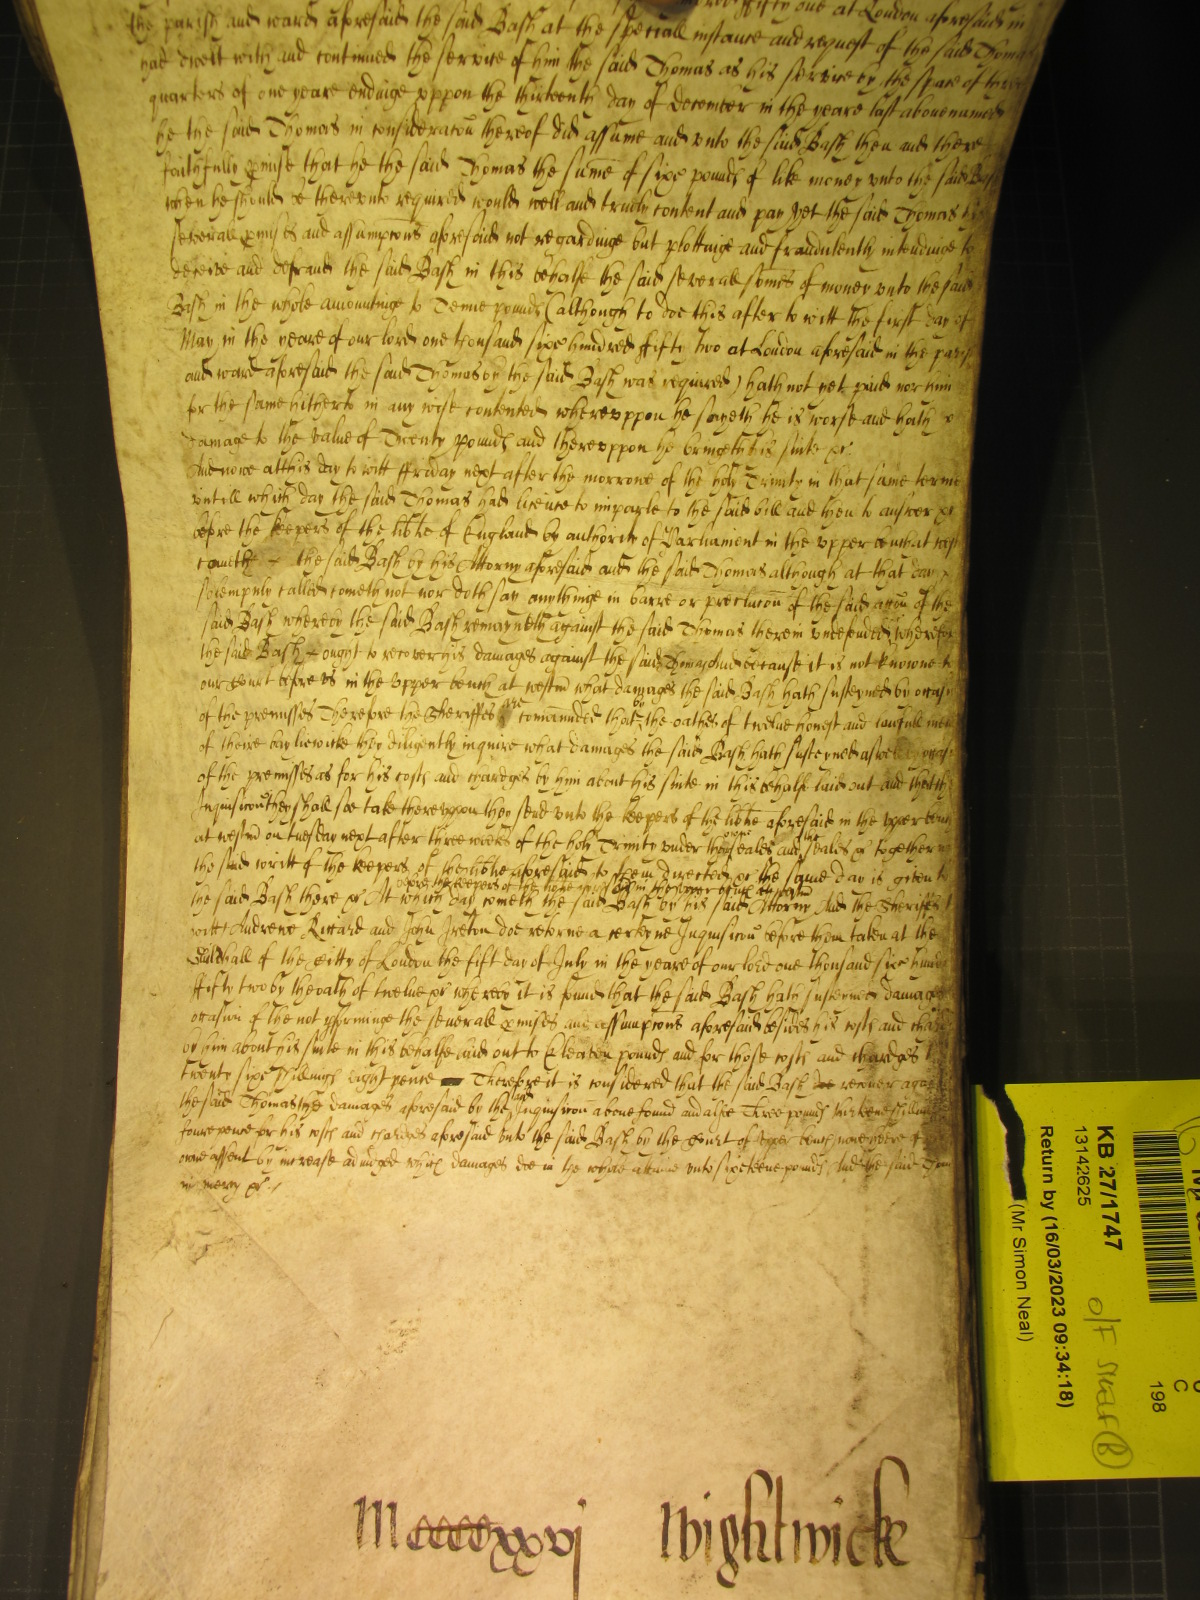 the parish and ward aforesaid the said Bash at the speciall instance and request of the said Thomas
had dwelt with and continued the service of him the said Thomas as his service by the space of three
quarters of one yeare endinge uppon the thirteenth day of december in the yeare last abovenamed
he the said Thomas in consideracon thereof did assume and unto the said Bash then and there
faithfully pmise that he the said Thomas the sume of sixe pounds of like money unto the said Bash
when he should be thereunto required would well and truely content and pay yet the said Thomas his
severall pmises and assumptions aforesaid not regardinge but plottinge and fraudulently intendinge to
deceive and defraud the said Bash in this behalfe the said severall somes of money unto the said
Bash in the whole amountinge to Tenne pounds (although to doe this after to witt the first day of
May in the yeare of our lord one thousand sixe hundred ffifty two at London aforesaid in the parish
and ward aforesaid the said Thomas by the said Bash was required) hath not yet paid nor him
for the same hitherto in any wise contented whereuppon he sayeth he is worse and hath
damage to the value of Twenty pounds and thereuppon he bringeth his suite &c
And nowe at this day to witt ffriday next after the morrowe of the holy Trinity in that same terme
untill which day the said Thomas had licence to imparle to the said bill and then to answer &c
before the keepers of the libtie of England by authority of Parliament in the upper bench at west
cometh the said Bash by his Attorny aforesaid and the said Thomas although at that day
solempnly called cometh not nor doth say anythinge in barre or preclucon of the said accon of the
said Bash whereby the said Bash remayneth against the said Thomas therein undefended wherefore
the said Bash ought to recover his damages against the said Thomas And because it is not knowne to
our Court before us in the upper bench at westm what damages the said Bash hath susteyned by occasion
of the premisses Therefore the Sheriffes are comaunded that by the oathes of twelve honest and lawfull men
of theire bayliewicke they diligently inquire what damages the said Bash hath susteyned aswell by occasion
of the premisses as for his costs and chardges by him about his suite in this behalfe laid out and that the
Inquisicon they shall soe take thereuppon they send unto the keepers of the libtie aforesaid in the upper bench
at westm on tuesday next after three weeks of the holy Trinity under theyr seales and the seales &c together with
the said writt of the keepers of the libtie aforesaid to them directed &c the same day is given to
before the keepers of the libtie aforesaid in the upper bench at westm
the said Bash there &c At which day cometh the said Bash by his said Attorny And the Sheriffes to
witt Andrewe Riccard and John Ireton doe retorne a certeyne Inquisicon before them taken at the
Guildhall of the Citty of London the fift day of July in the yeare of our lord one thousand sixe hundred
ffifty two by the oath of twelve &c whereby it is found that the said Bash hath susteyned damages
occasion of the not pforminge the severall pmises and assumptions aforesaid besides his costs and chardges
by him about his suite in this behalfe laid out to Eleaven pounds and for those costs and chardges
twenty sixe shillings eight pence Therefore it is considered that the said Bash doe recover against
the said Thomas the damages aforesaid by the said Inquisicon above found and alsoe Three pounds thirteene shillings
fowrepence for his costs and chardges aforesaid unto the said Bash by the Court of upper bench
owne assent by increase adiudged which damages doe in the whole attaine unto sixteene pounds And the said Thomas
in mercy &c
Mccccxxvj Wightwicke
KB 27/1747
13142625
Return by (16/03/2023 09:34:18)
(Mr Simon Neal)
C
198